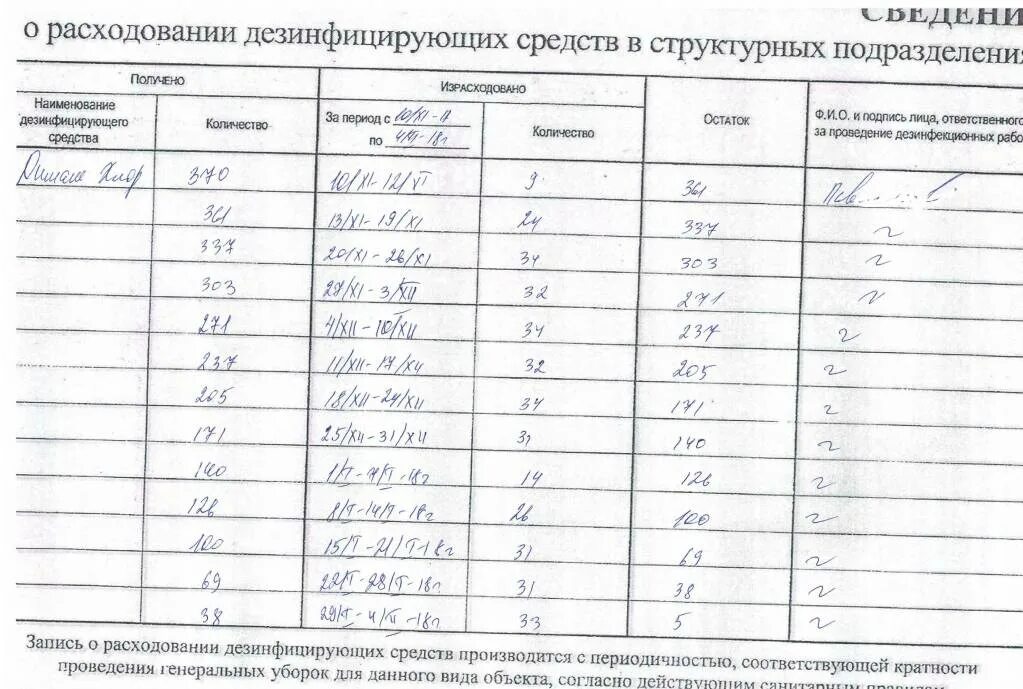 СВЕДЕНИ
о расходовании дезинфицирующих средств в структурных подразделения
Получено
Израсходовано
Остаток
Ф.И.О. и подпись лица, ответственного
за проведение дезинфекционных рабо
Наименование
дезинфицирующего
средства
Количество
За период с 10/XI-17
по 4/II-18г
Количество
Хлор 370 10/XI-12/VI 9 361
361 13/XI-19/XI 24 337 ~
337 20/XI-26/XI 34 303 ~
303 27/XI-3/XII 32 271 ~
271 4/XII-10/XII 34 237 ~
237 11/XII-17/XII 32 205 ~
205 18/XII-24/XII 34 171 ~
171 25/XII-31/XII 31 140 ~
140 1/I-7/I-18г 14 126 ~
126 8/I-14/I-18г 26 100 ~
100 15/I-21/I-18г 31 69 ~
69 22/I-28/I-18г 31 38 ~
38 29/I-4/II-18г 33 5 ~
Запись о расходовании дезинфицирующих средств производится с периодичностью, соответствующей кратности
проведения генеральных уборок для данного вида объекта, согласно действующим санитарным правилам